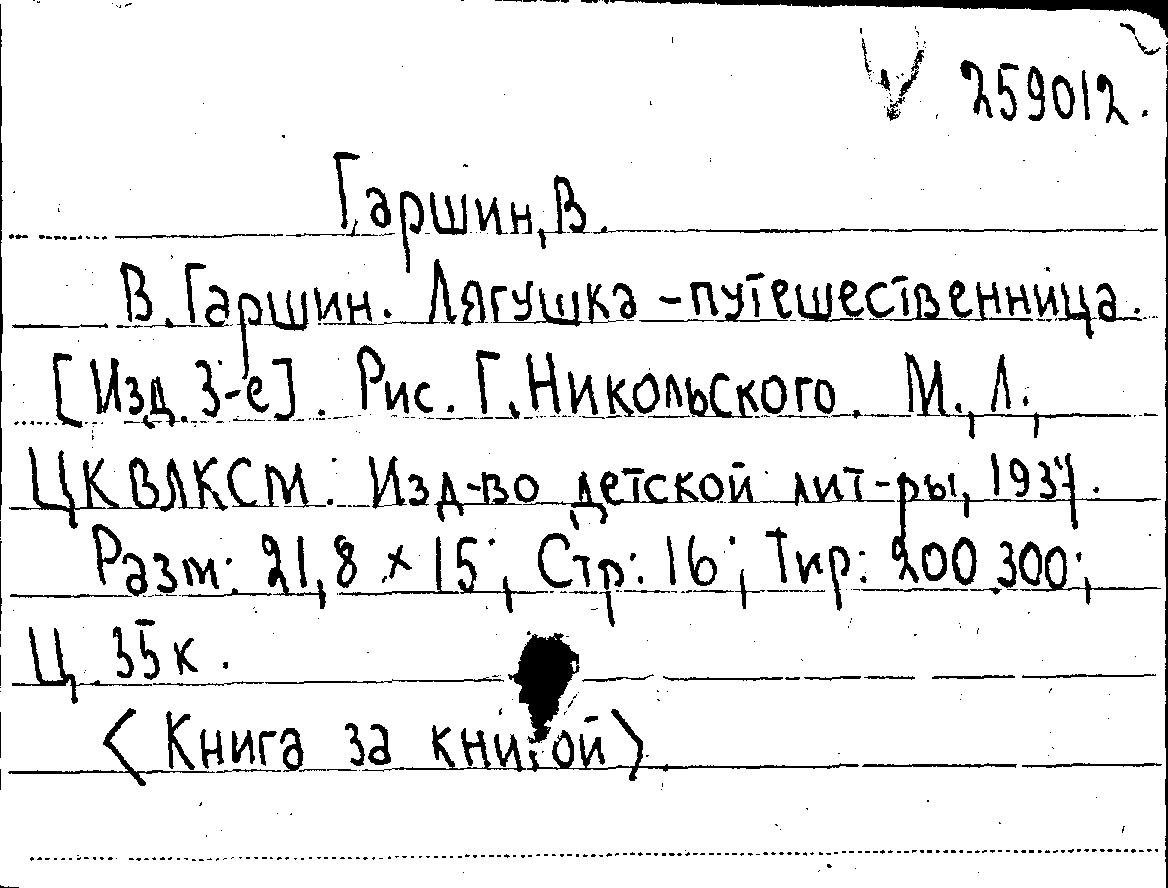 259012.
Гаршин, В.
В. Гаршин. Лягушка-путешественница.
[Изд. 3-е]. Рис. Г. Никольского. М., Л.,
ЦК ВЛКСМ: Изд-во детской лит-ры, 1937.
Разм: 21,8 × 15; Стр: 16; Тир: 200 300;
Ц. 35 к.
<Книга за книгой>.